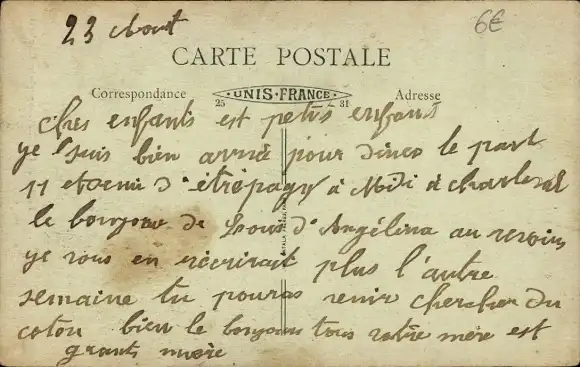 23 Aout
6€
CARTE POSTALE
Correspondance
UNIS-FRANCE
Adresse
25
31
chers enfants est petits enfants
je suis bien arrivé pour diner le part
11 d'étrépagny à Midi à charleval
le bonjour de Louis d'Angélina au revoir
je vous en récrirait plus l'autre
semaine tu pouras venir chercher du
coton bien le bonjour tous votre mère est
grants mère